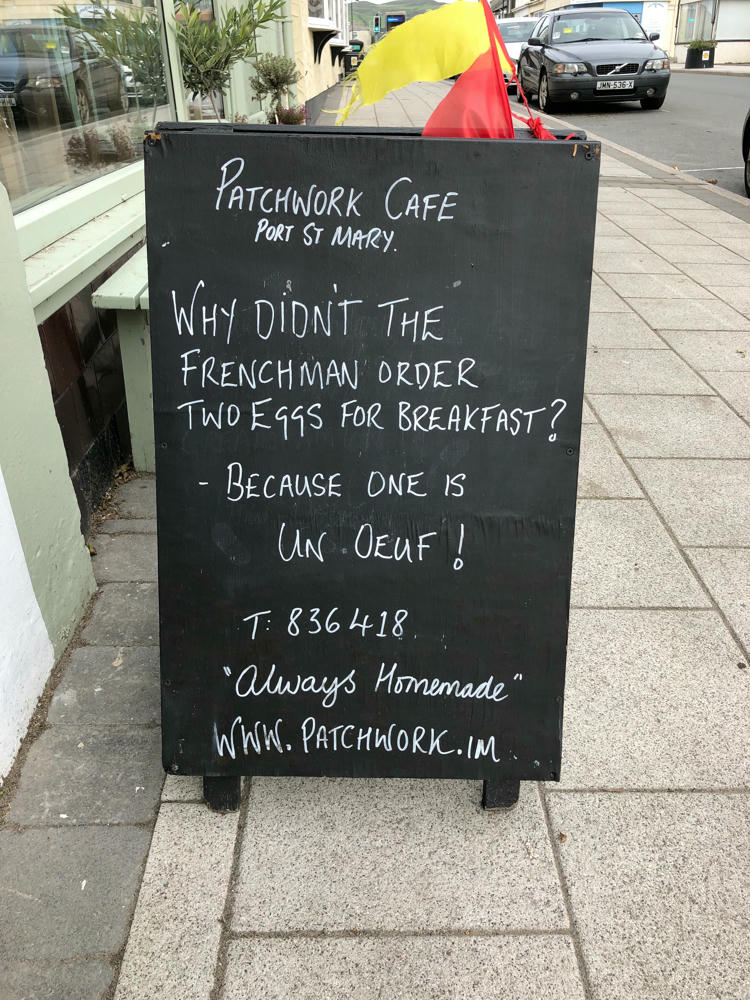 PATCHWORK CAFE
PORT ST MARY.
WHY DIDN'T THE
FRENCHMAN ORDER
TWO EGGS FOR BREAKFAST?
- BECAUSE ONE IS
UN OEUF!
T: 836418
"Always Homemade"
WWW.PATCHWORK.IM
JMN-536-X